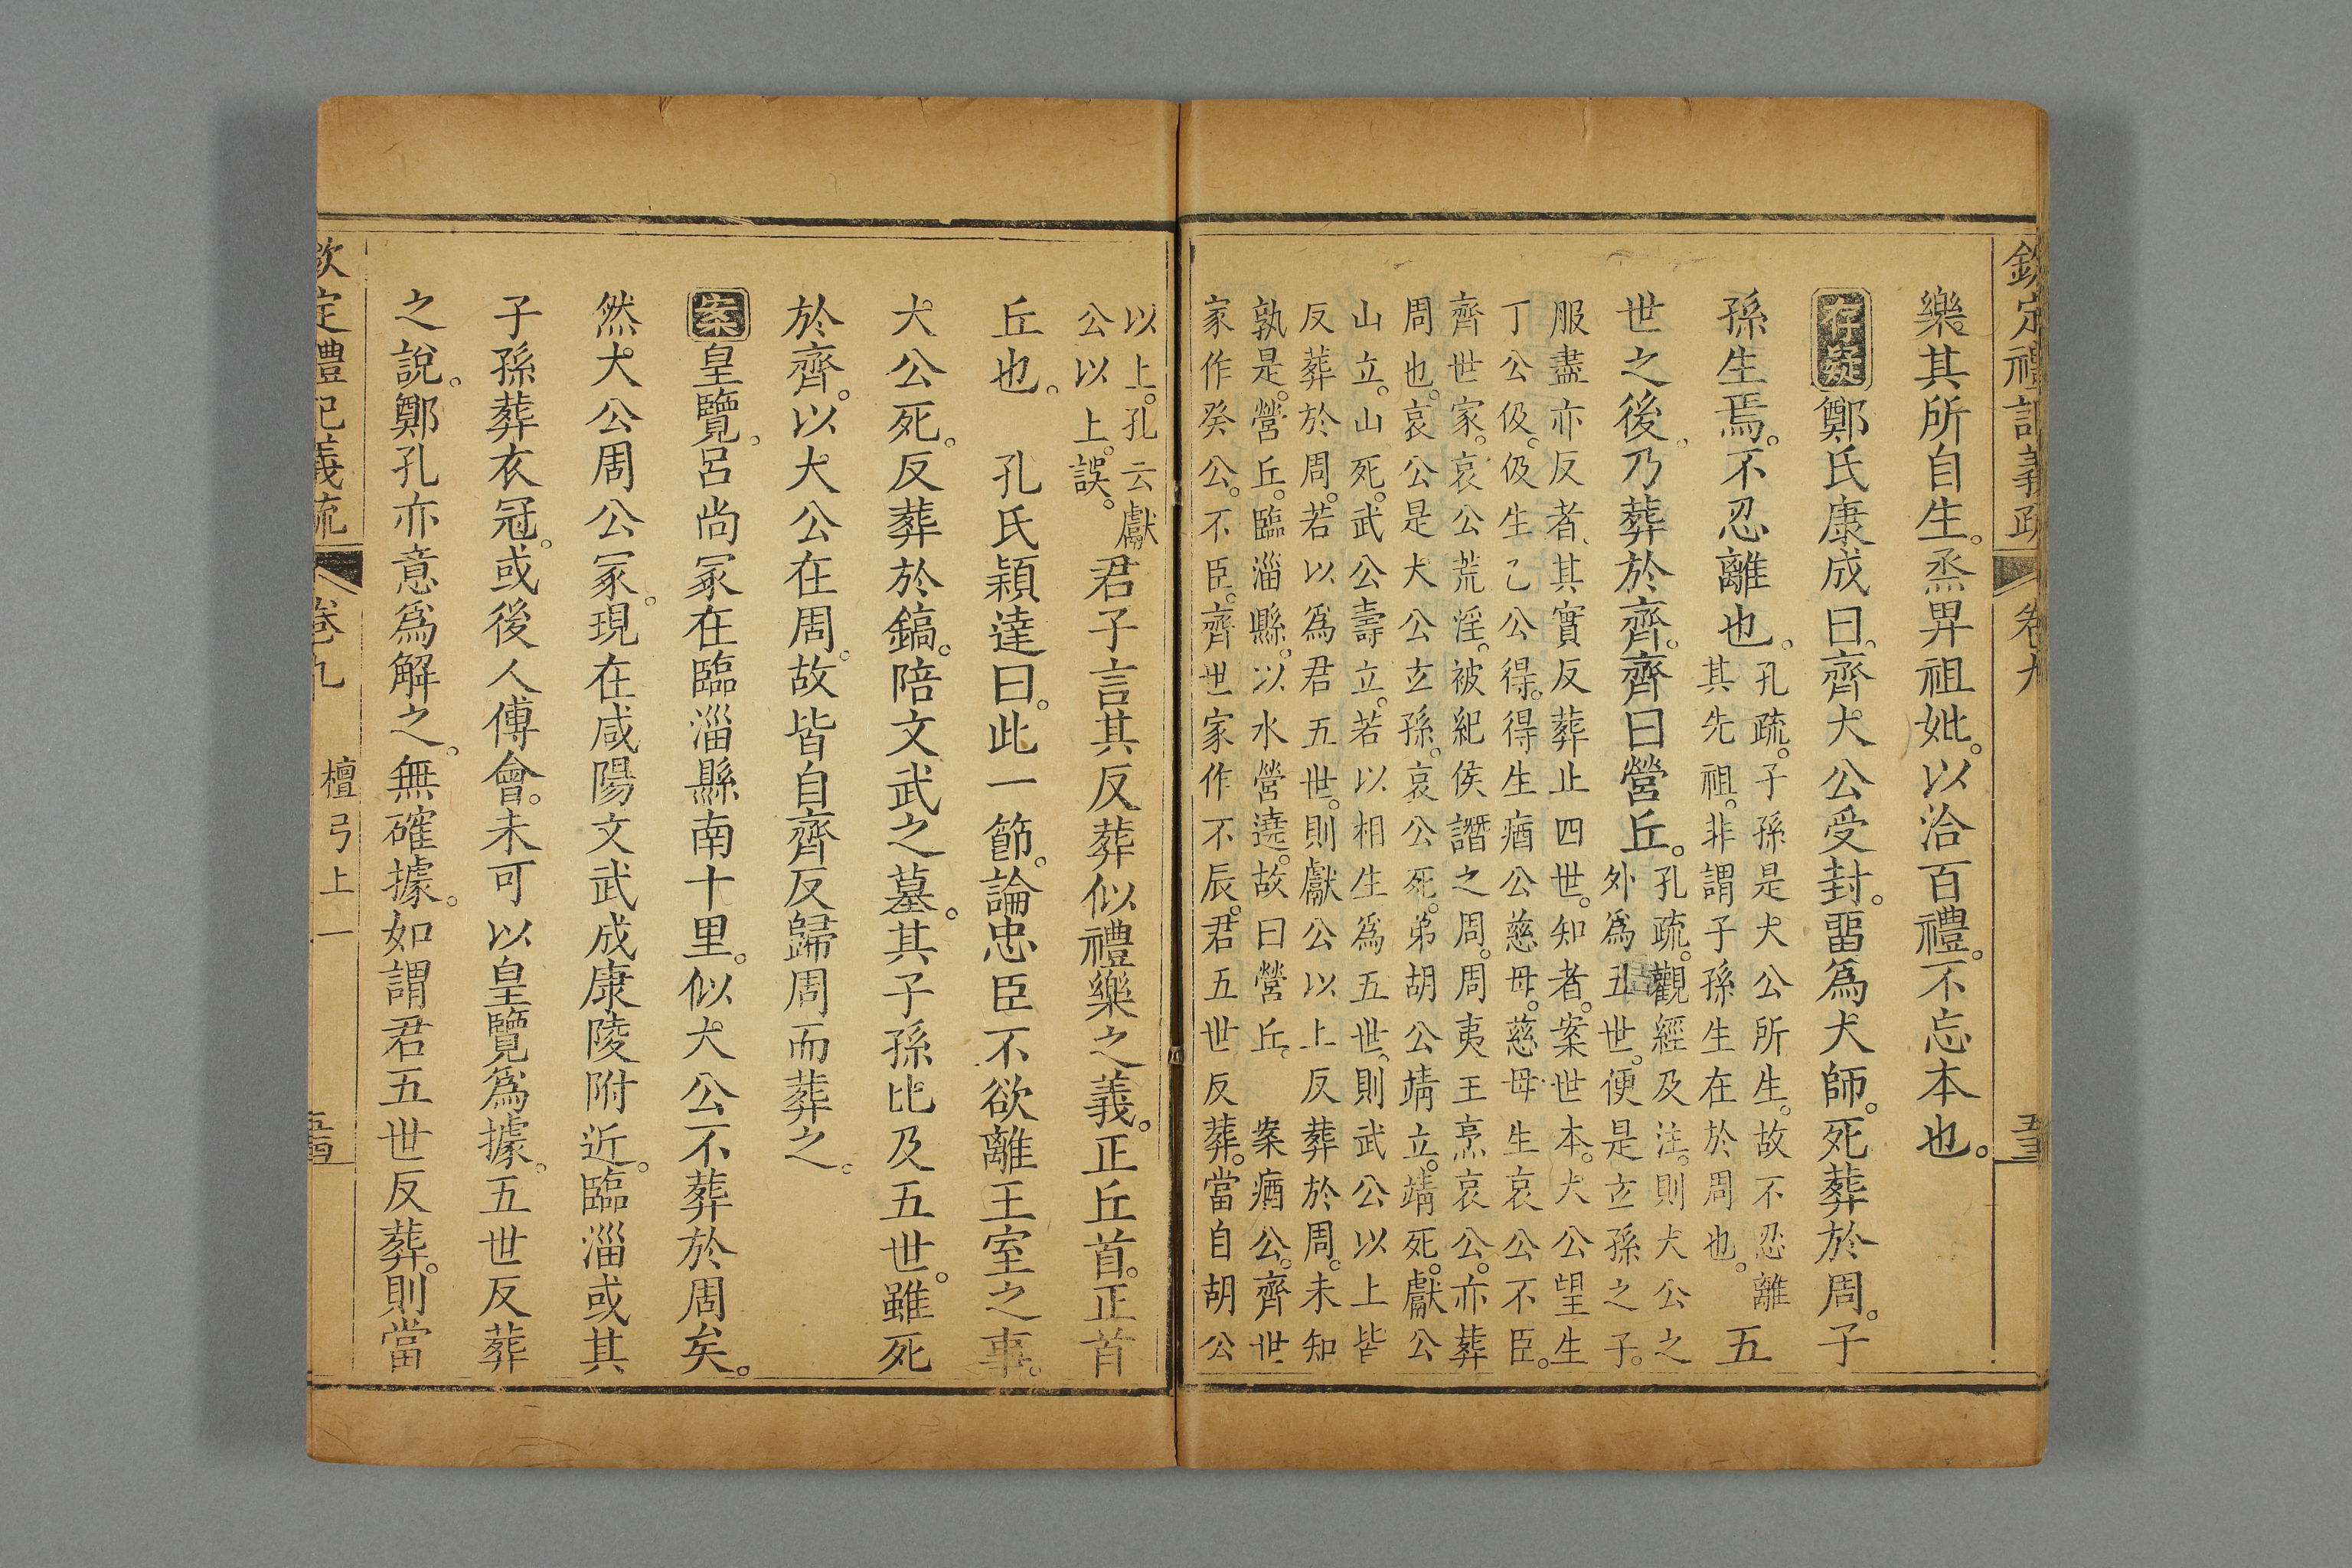 欽定禮記義疏 卷九
樂其所自生。烝畀祖妣。以洽百禮。不忘本也。
存疑鄭氏康成曰。齊大公受封。畱爲大師。死葬於周。子
孫生焉。不忍離也。孔疏。子孫是大公所生。故不忍離其先祖。非謂子孫生在於周也。五
世之後。乃葬於齊。齊曰營丘。孔疏。觀經及注。則大公之外爲五世。便是玄孫之子。
服盡亦反者。其實反葬止四世。知者。案世本。大公望生
丁公伋。伋生乙公得。得生㾞公慈母。慈母生哀公不臣。
齊世家。哀公荒淫。被紀侯譖之周。周夷王烹哀公。亦葬
周也。哀公是大公玄孫。哀公死。弟胡公靖立。靖死。獻公
山立。山死。武公壽立。若以相生爲五世。則武公以上皆
反葬於周。若以爲君五世。則獻公以上反葬於周。未知
孰是。營丘。臨淄縣。以水營遶。故曰營丘。 案㾞公。齊世
家作癸公。不臣。齊世家作不辰。君五世反葬。當自胡公
以上。孔云獻公以上。誤。君子言其反葬似禮樂之義。正丘首。正首
丘也。 孔氏穎達曰。此一節。論忠臣不欲離王室之事。
大公死。反葬於鎬。陪文武之墓。其子孫比及五世。雖死
於齊。以大公在周。故皆自齊反歸周而葬之。
案皇覽。呂尚冢在臨淄縣南十里。似大公不葬於周矣。
然大公周公冢。現在咸陽文武成康陵附近。臨淄或其
子孫葬衣冠。或後人傅會。未可以皇覽爲據。五世反葬
之說。鄭孔亦意爲解之。無確據。如謂君五世反葬。則當
欽定禮記義疏 卷九 檀弓上一